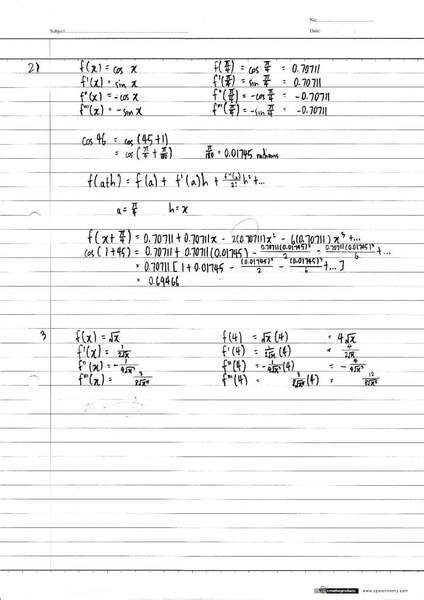 No:
Subject Date:
2) f(x) = cos x f(π/4) = cos π/4 = 0.70711
f'(x) = sin x f'(π/4) = sin π/4 = 0.70711
f''(x) = -cos x f''(π/4) = -cos π/4 = -0.70711
f'''(x) = -sin x f'''(π/4) = -sin π/4 = -0.70711
cos 46 = cos (45+1)
= cos (π/4 + π/180) π/180 = 0.01745 radians
f(a+h) = f(a) + f'(a)h + f''(a)/2! h² + ...
a = π/4 h = x
f(x + π/4) = 0.70711 + 0.70711x - 2(0.70711)x² - 6(0.70711)x³ + ...
cos (1+45) = 0.70711 + 0.70711(0.01745) - 0.70711(0.01745)²/2 - 0.70711(0.01745)³/6 + ...
= 0.70711 [1 + 0.01745 - (0.01745)²/2 - (0.01745)³/6 + ...]
= 0.69466
3 f(x) = √x f(4) = √x (4) = 4√x
f'(x) = 1/2√x f'(4) = 1/2√x (4) = 4/2√x
f''(x) = f''(4) =
f'''(x) = f'''(4) =
www.